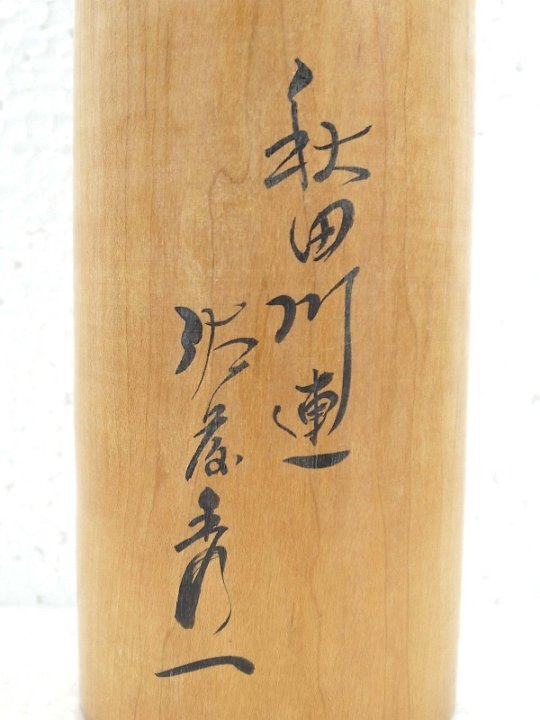 秋田川連
佐藤秀一